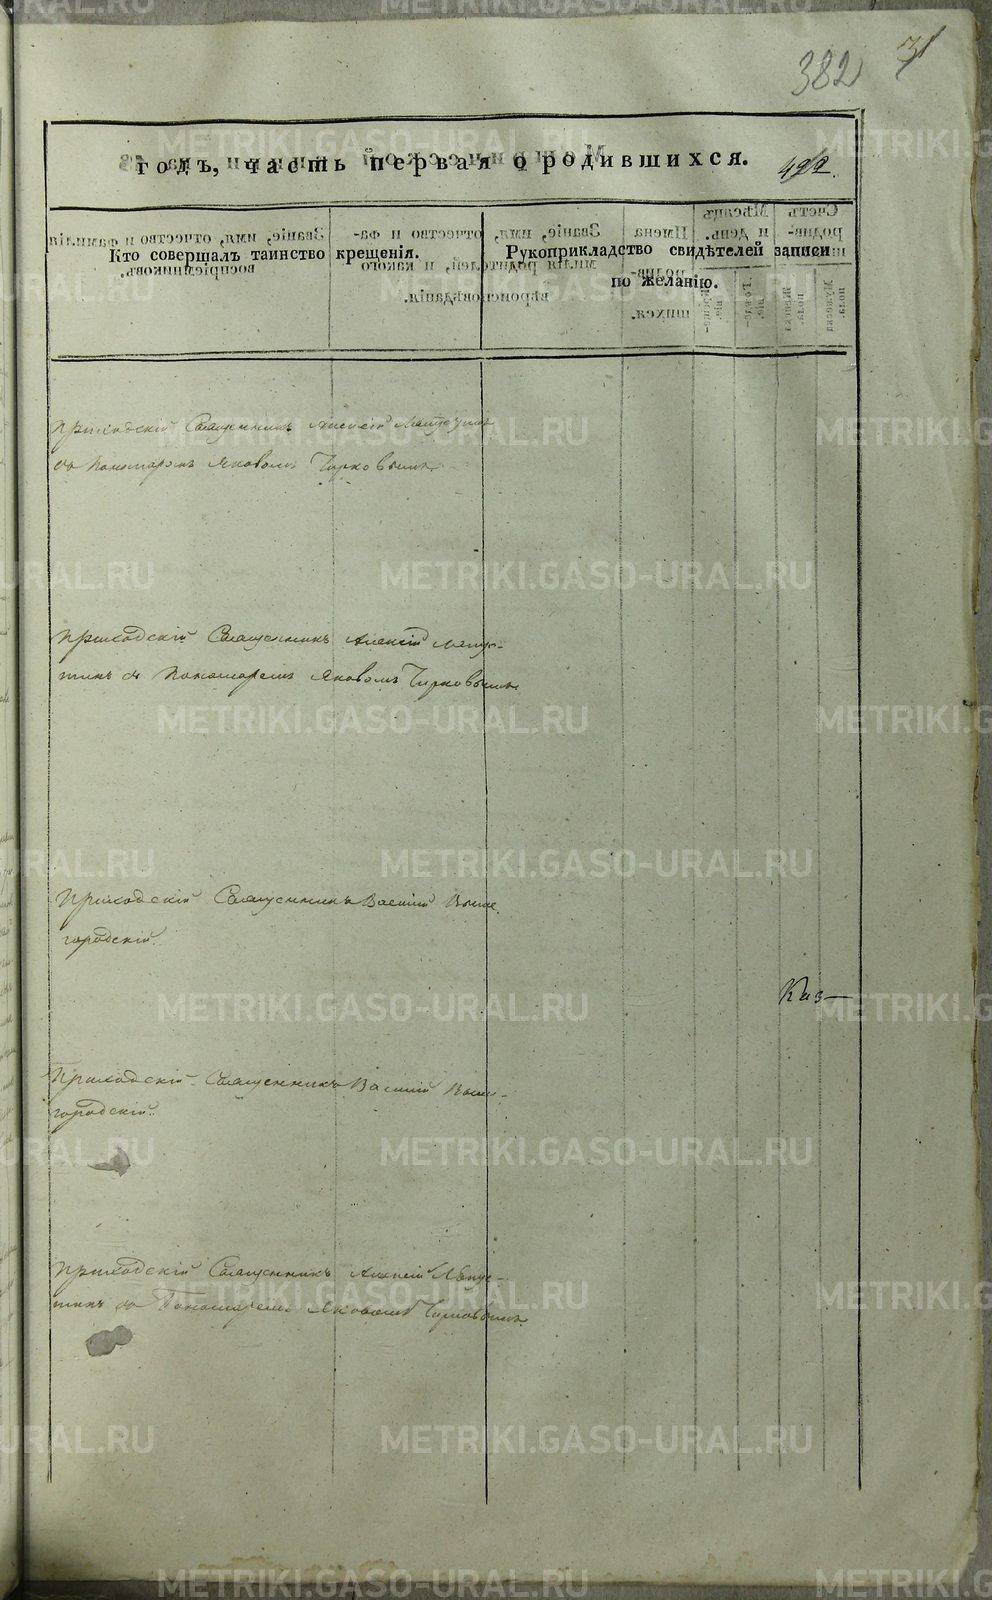 382
31
годъ, часть первая о родившихся.
Кто совершалъ таинство крещенія.
Рукоприкладство свидѣтелей записи
по желанію.
Приходскій Священникъ Алексій
съ Пономаремъ Яковомъ Чирковымъ
Приходскій Священникъ Алексій Лепус-
тинъ съ Пономаремъ Яковомъ Чирковымъ
Приходскій Священникъ Василій Выше
городскій.
Каз—
Приходскій Священникъ Василій Выше-
городскій.
Приходскій Священникъ Алексій Лепус-
тинъ съ Пономаремъ Яковомъ Чирковымъ
METRIKI.GASO-URAL.RU